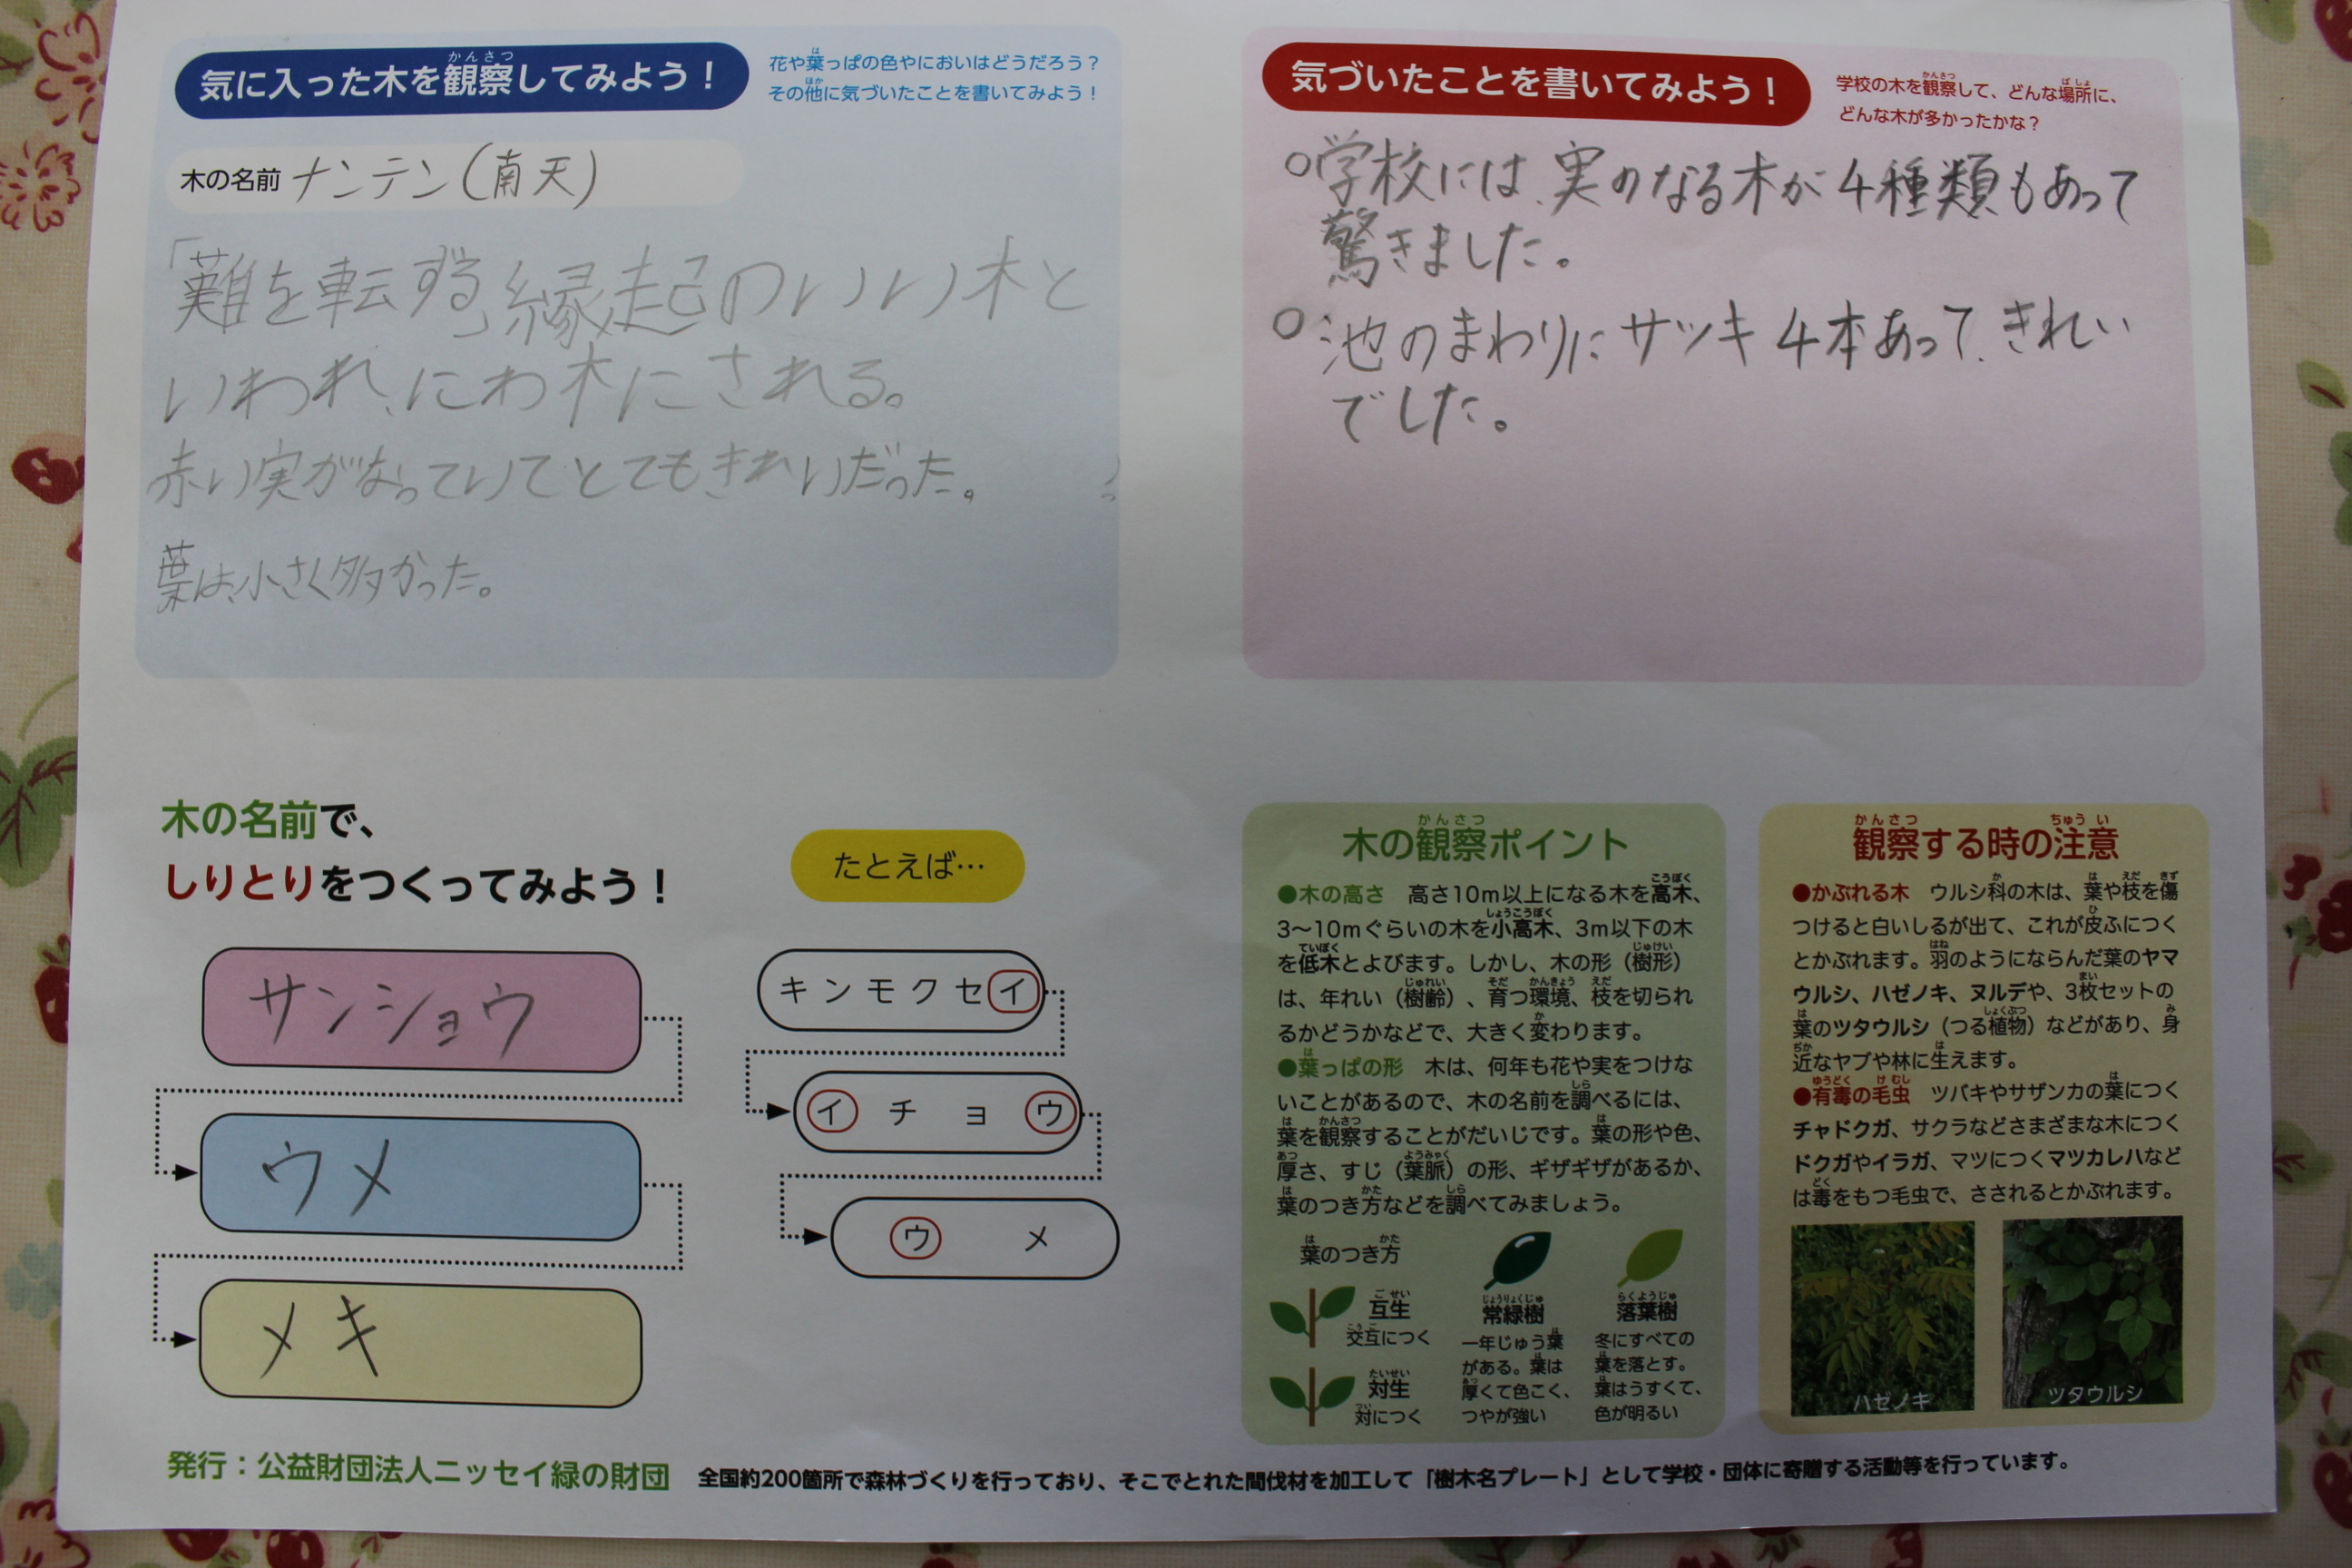 気に入った木を観察してみよう！
かんさつ
花や葉っぱの色やにおいはどうだろう？
は
その他に気づいたことを書いてみよう！
ほか
木の名前 ナンテン(南天)
「難を転ずる」縁起のいい木と
いわれ、にわ木にされる。
赤い実がなっていてとてもきれいだった。
葉は、小さく多かった。
気づいたことを書いてみよう！
学校の木を観察して、どんな場所に、
かんさつ ばしょ
どんな木が多かったかな？
○学校には、実のなる木が4種類もあって
驚きました。
○池のまわりにサツキ4本あって、きれい
でした。
木の名前で、
しりとりをつくってみよう！
サンショウ
ウメ
メキ
たとえば…
キンモクセイ
イチョウ
ウメ
木の観察ポイント
かんさつ
●木の高さ 高さ10m以上になる木を高木、
こうぼく
3〜10mぐらいの木を小高木、3m以下の木
しょうこうぼく
を低木とよびます。しかし、木の形（樹形）
ていぼく じゅけい
は、年れい（樹齢）、育つ環境、枝を切られ
じゅれい そだ かんきょう えだ
るかどうかなどで、大きく変わります。
か
●葉っぱの形 木は、何年も花や実をつけな
は
いことがあるので、木の名前を調べるには、
しら
葉を観察することがだいじです。葉の形や色、
は かんさつ は
厚さ、すじ（葉脈）の形、ギザギザがあるか、
あつ ようみゃく
葉のつき方などを調べてみましょう。
は かた しら
葉のつき方
は かた
互生
ごせい
交互につく
こうご
対生
たいせい
対につく
つい
常緑樹
じょうりょくじゅ
一年じゅう葉
は
がある。葉は
は
厚くて色こく、
あつ
つやが強い
落葉樹
らくようじゅ
冬にすべての
葉を落とす。
は
葉はうすくて、
は
色が明るい
観察する時の注意
かんさつ ちゅうい
●かぶれる木 ウルシ科の木は、葉や枝を傷
か は えだ きず
つけると白いしるが出て、これが皮ふにつく
ひ
とかぶれます。羽のようにならんだ葉のヤマ
はね
ウルシ、ハゼノキ、ヌルデや、3枚セットの
まい
葉のツタウルシ（つる植物）などがあり、身
は しょくぶつ み
近なヤブや林に生えます。
ぢか は
●有毒の毛虫 ツバキやサザンカの葉につく
ゆうどく けむし は
チャドクガ、サクラなどさまざまな木につく
ドクガやイラガ、マツにつくマツカレハなど
は毒をもつ毛虫で、さされるとかぶれます。
どく
ハゼノキ
ツタウルシ
発行：公益財団法人ニッセイ緑の財団 全国約200箇所で森林づくりを行っており、そこでとれた間伐材を加工して「樹木名プレート」として学校・団体に寄贈する活動等を行っています。